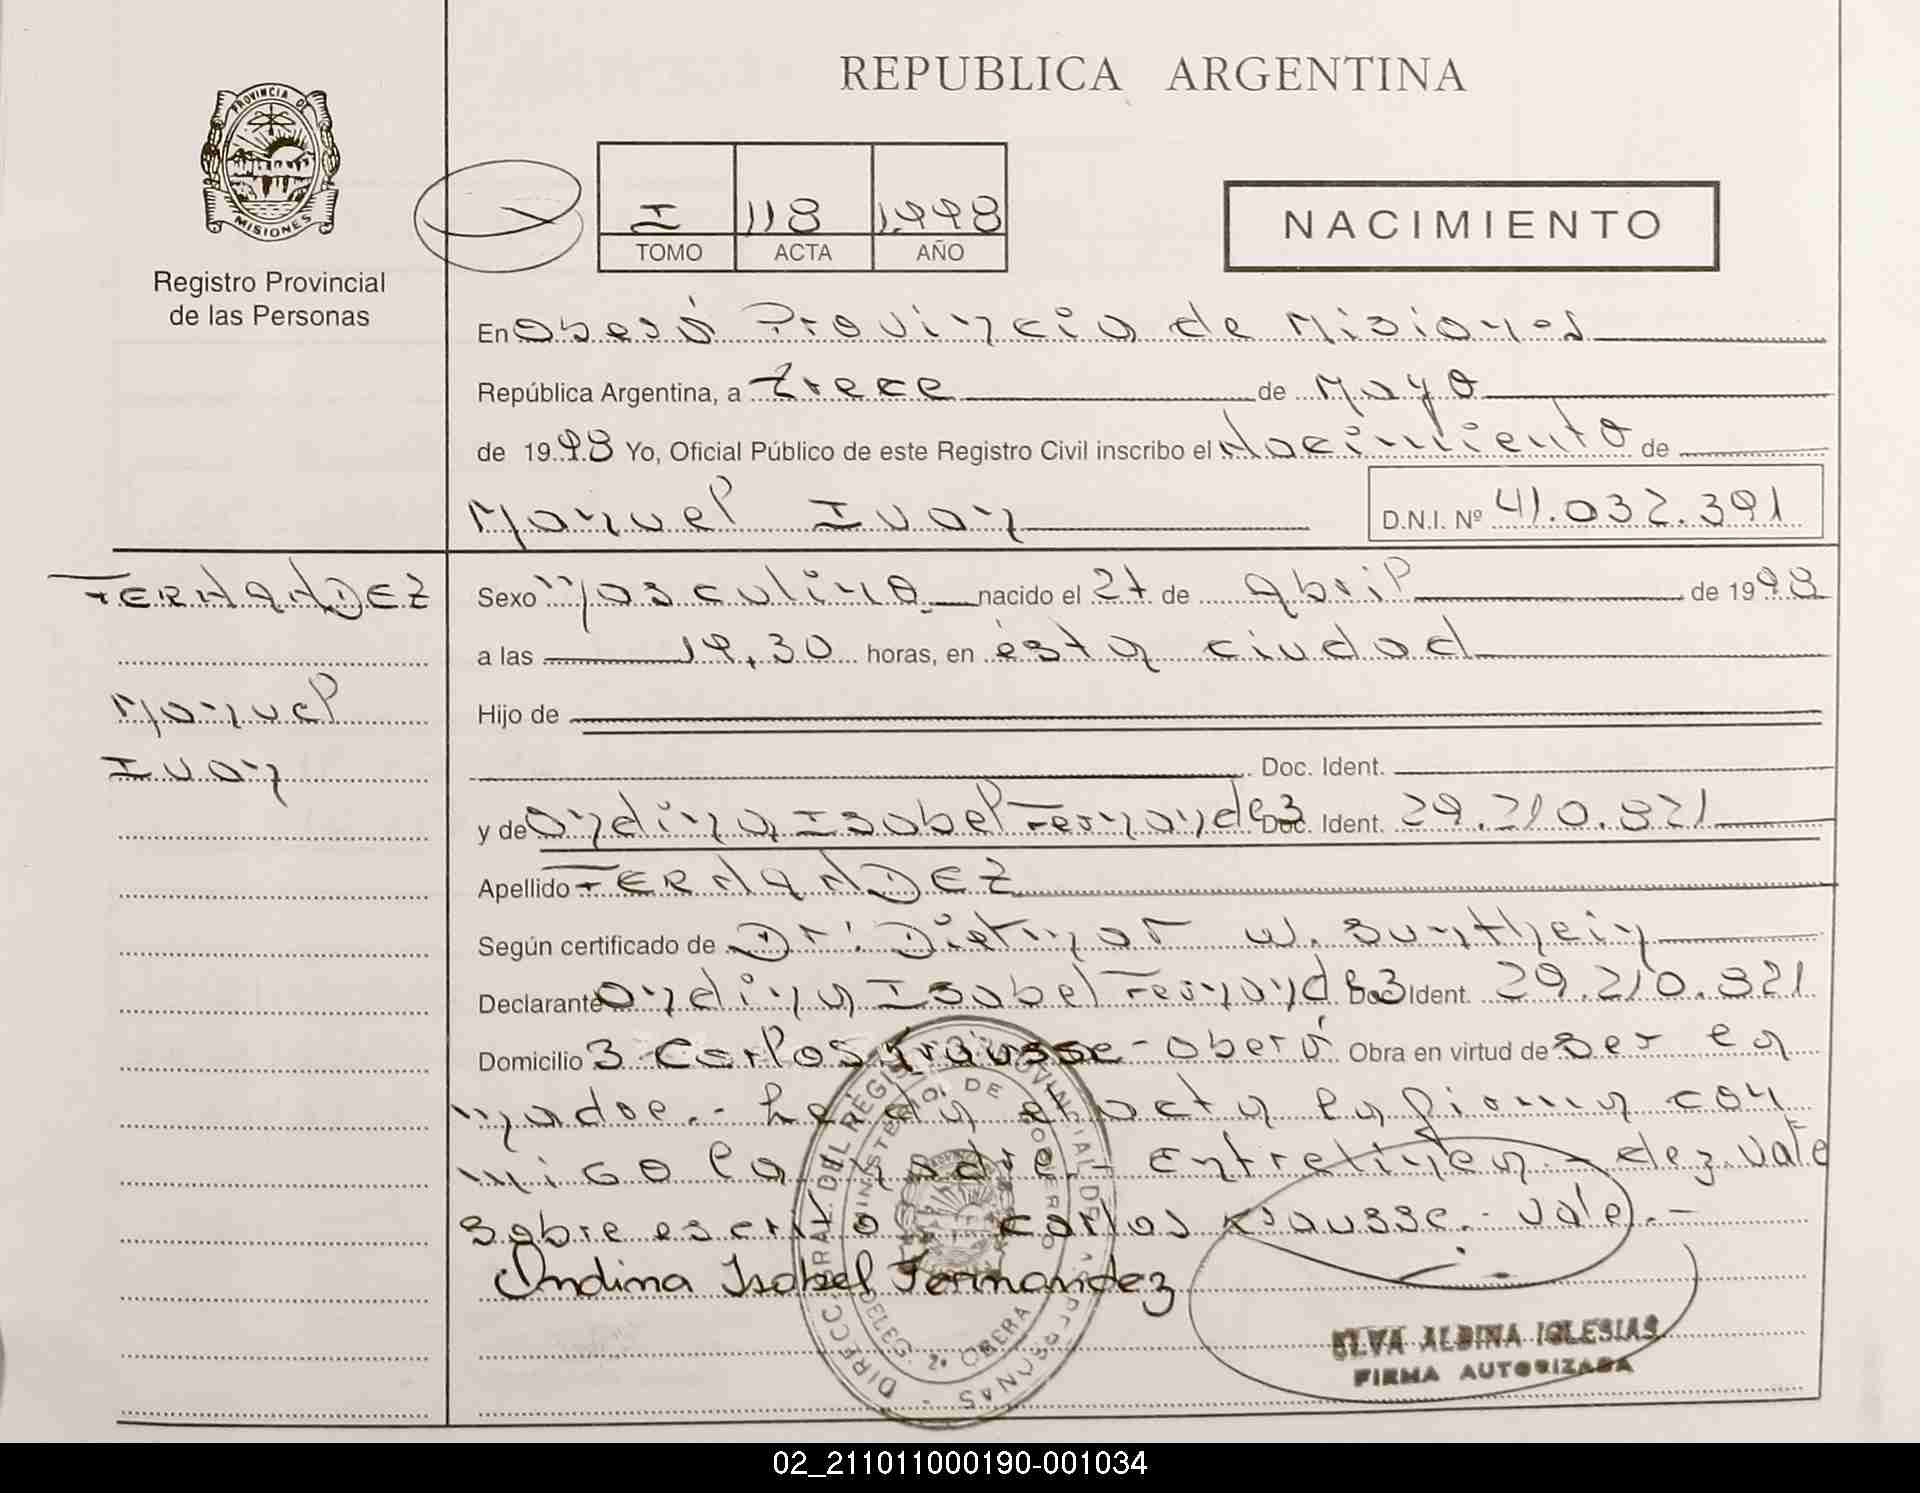 REPUBLICA ARGENTINA
PROVINCIA DE
MISIONES
Registro Provincial
de las Personas
I 118 1.998
TOMO ACTA AÑO
NACIMIENTO
En Oberá Provincia de Misiones
República Argentina, a trece de Mayo
de 1998 Yo, Oficial Público de este Registro Civil inscribo el Nacimiento de
Manuel Ivan D.N.I. Nº 41.032.391
FERNANDEZ
Manuel
Ivan
Sexo Masculino nacido el 27 de abril de 1998
a las 19,30 horas, en ésta ciudad
Hijo de
Doc. Ident.
y de Ondina Isabel Fernandez Doc. Ident. 29.210.821
Apellido FERNANDEZ
Según certificado de Dr: Dietmar W. Sunthein
Declarante Ondina Isabel Fernandez Doc. Ident. 29.210.821
Domicilio 3 Carlos Krausse - Oberá Obra en virtud de Ser la
madre.- acta la firma con
migo la madre.- Entrelinea - dez. vale
Sobre escrito Carlos Krausse.- vale.-
Ondina Isabel Fernandez
DIRECC. GRAL. DEL REGISTRO PROVINCIAL DE LAS PERSONAS
MINISTERIO DE GOBIERNO
DELEG. 2ª OBERA
ELVA ALBINA IGLESIAS
FIRMA AUTORIZADA
02_211011000190-001034